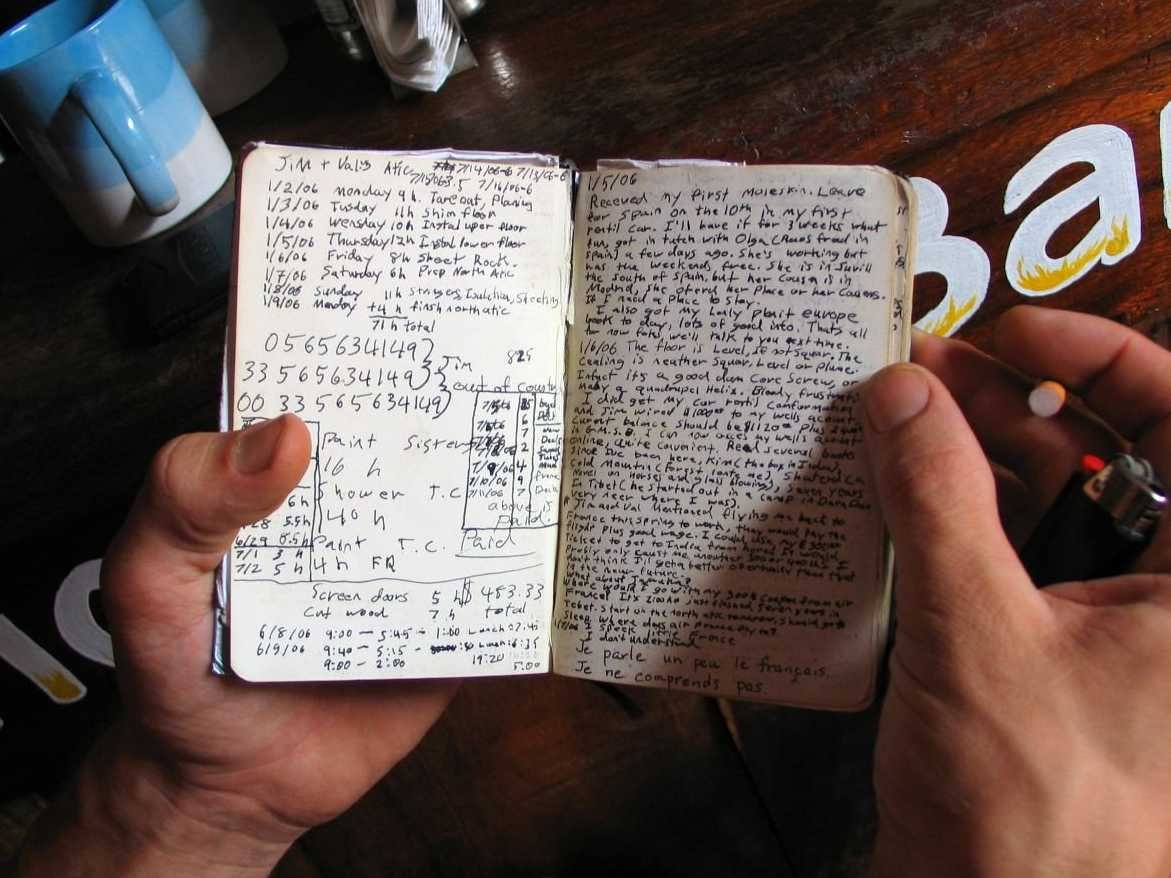 Jim + Val's Atic 7/14/06-6 7/15/06-6
7/16/06-6
1/2/06 monday 9 h. Tareout, Planing
1/3/06 Tusday 11h Shim floor
1/4/06 Wensday 10h Instal uper floor
1/5/06 Thursday 12h Instal lower floor
1/6/06 Friday 8h Sheet Rock.
1/7/06 Saturday 6h Prep North Atic
1/8/06 Sunday 11h stringers, Insulation, Sheeting
1/9/06 Monday +4 h finsh north atic
71h total
0565634149
33 565634149 Jim 825
00 33 565634149 (out of country
Paint Sister
16 h
Shower T.C
40 h
6h
5.5h
6/29
7/1 3 h
7/2 5 h
Paint T.C.
4h FR
7/9/06 4
7/10/06 9
7/11/06 7
above is
paid.
Paid
Screen doors 5 h $453.33
Cut wood 7 h total
6/8/06 9:00 - 5:45 - 1:00 Lunch 07:45
6/9/06 9:40 - 5:15 - :50 Lunch 6:35
9:00 - 2:00 19:20 5:00
1/5/06
Receved my first Moleskin. Leave
for Spain on the 10th in my first
rentil car. I'll have it for 3 weeks what
fun, got in tutch with Olga (Raos fread in
Spain) a few days ago. She's working but
has the weekends free. She is in Sivill
the South of Spain, but her Cousen is in
Modrid, she oferd her Place or her Cousens.
If I need a Place to stay.
I also got my Lonly Planit europe
book to day, lots of good info. Thats all
for now folks, we'll talk to you next time.
1/6/06 The floor is Level, if not Squar. The
Cealing is neather Squar, Level or Plume.
Infact it's a good dam Core Screw, or
Maby a quadrupel Helix. Bloody frustrati
I did get my Car rentil Conformation
and Jim wired $1000 to my wells acount.
Curent balance should be $1120 Plus
in G.M.S.B. I can now acces my wells acount
online, quite Convenint. Read several books
since I've been here, Kim (the box in India),
Cold Mountin (forest loante me),
Novel on Horses and glass blowing), Seven years
In Tibet (he started out in a camp in Dara Dun
very neer where I was).
Jim and Val Mentioned flying me back to
France this Spring to work, they would Pay the
flight Plus good wage. I could use my $300
ticket to get to India from home. It would
Probly only cost me another 300 or 400 u.s. I
don't think I'll get a better opertunity than that
in the neer future.
What about Jamaka?
Where would I go with my 300$ Coupon from air
France? It's 2:00am just finished Seven years in
Tebet. Start on the north atic tomorrow, should go to
Sleep. Where does air France fly to?
1/7/06 I speek little France
I don't understand
Je parle un peu le français.
Je ne comprends pas.
Ba